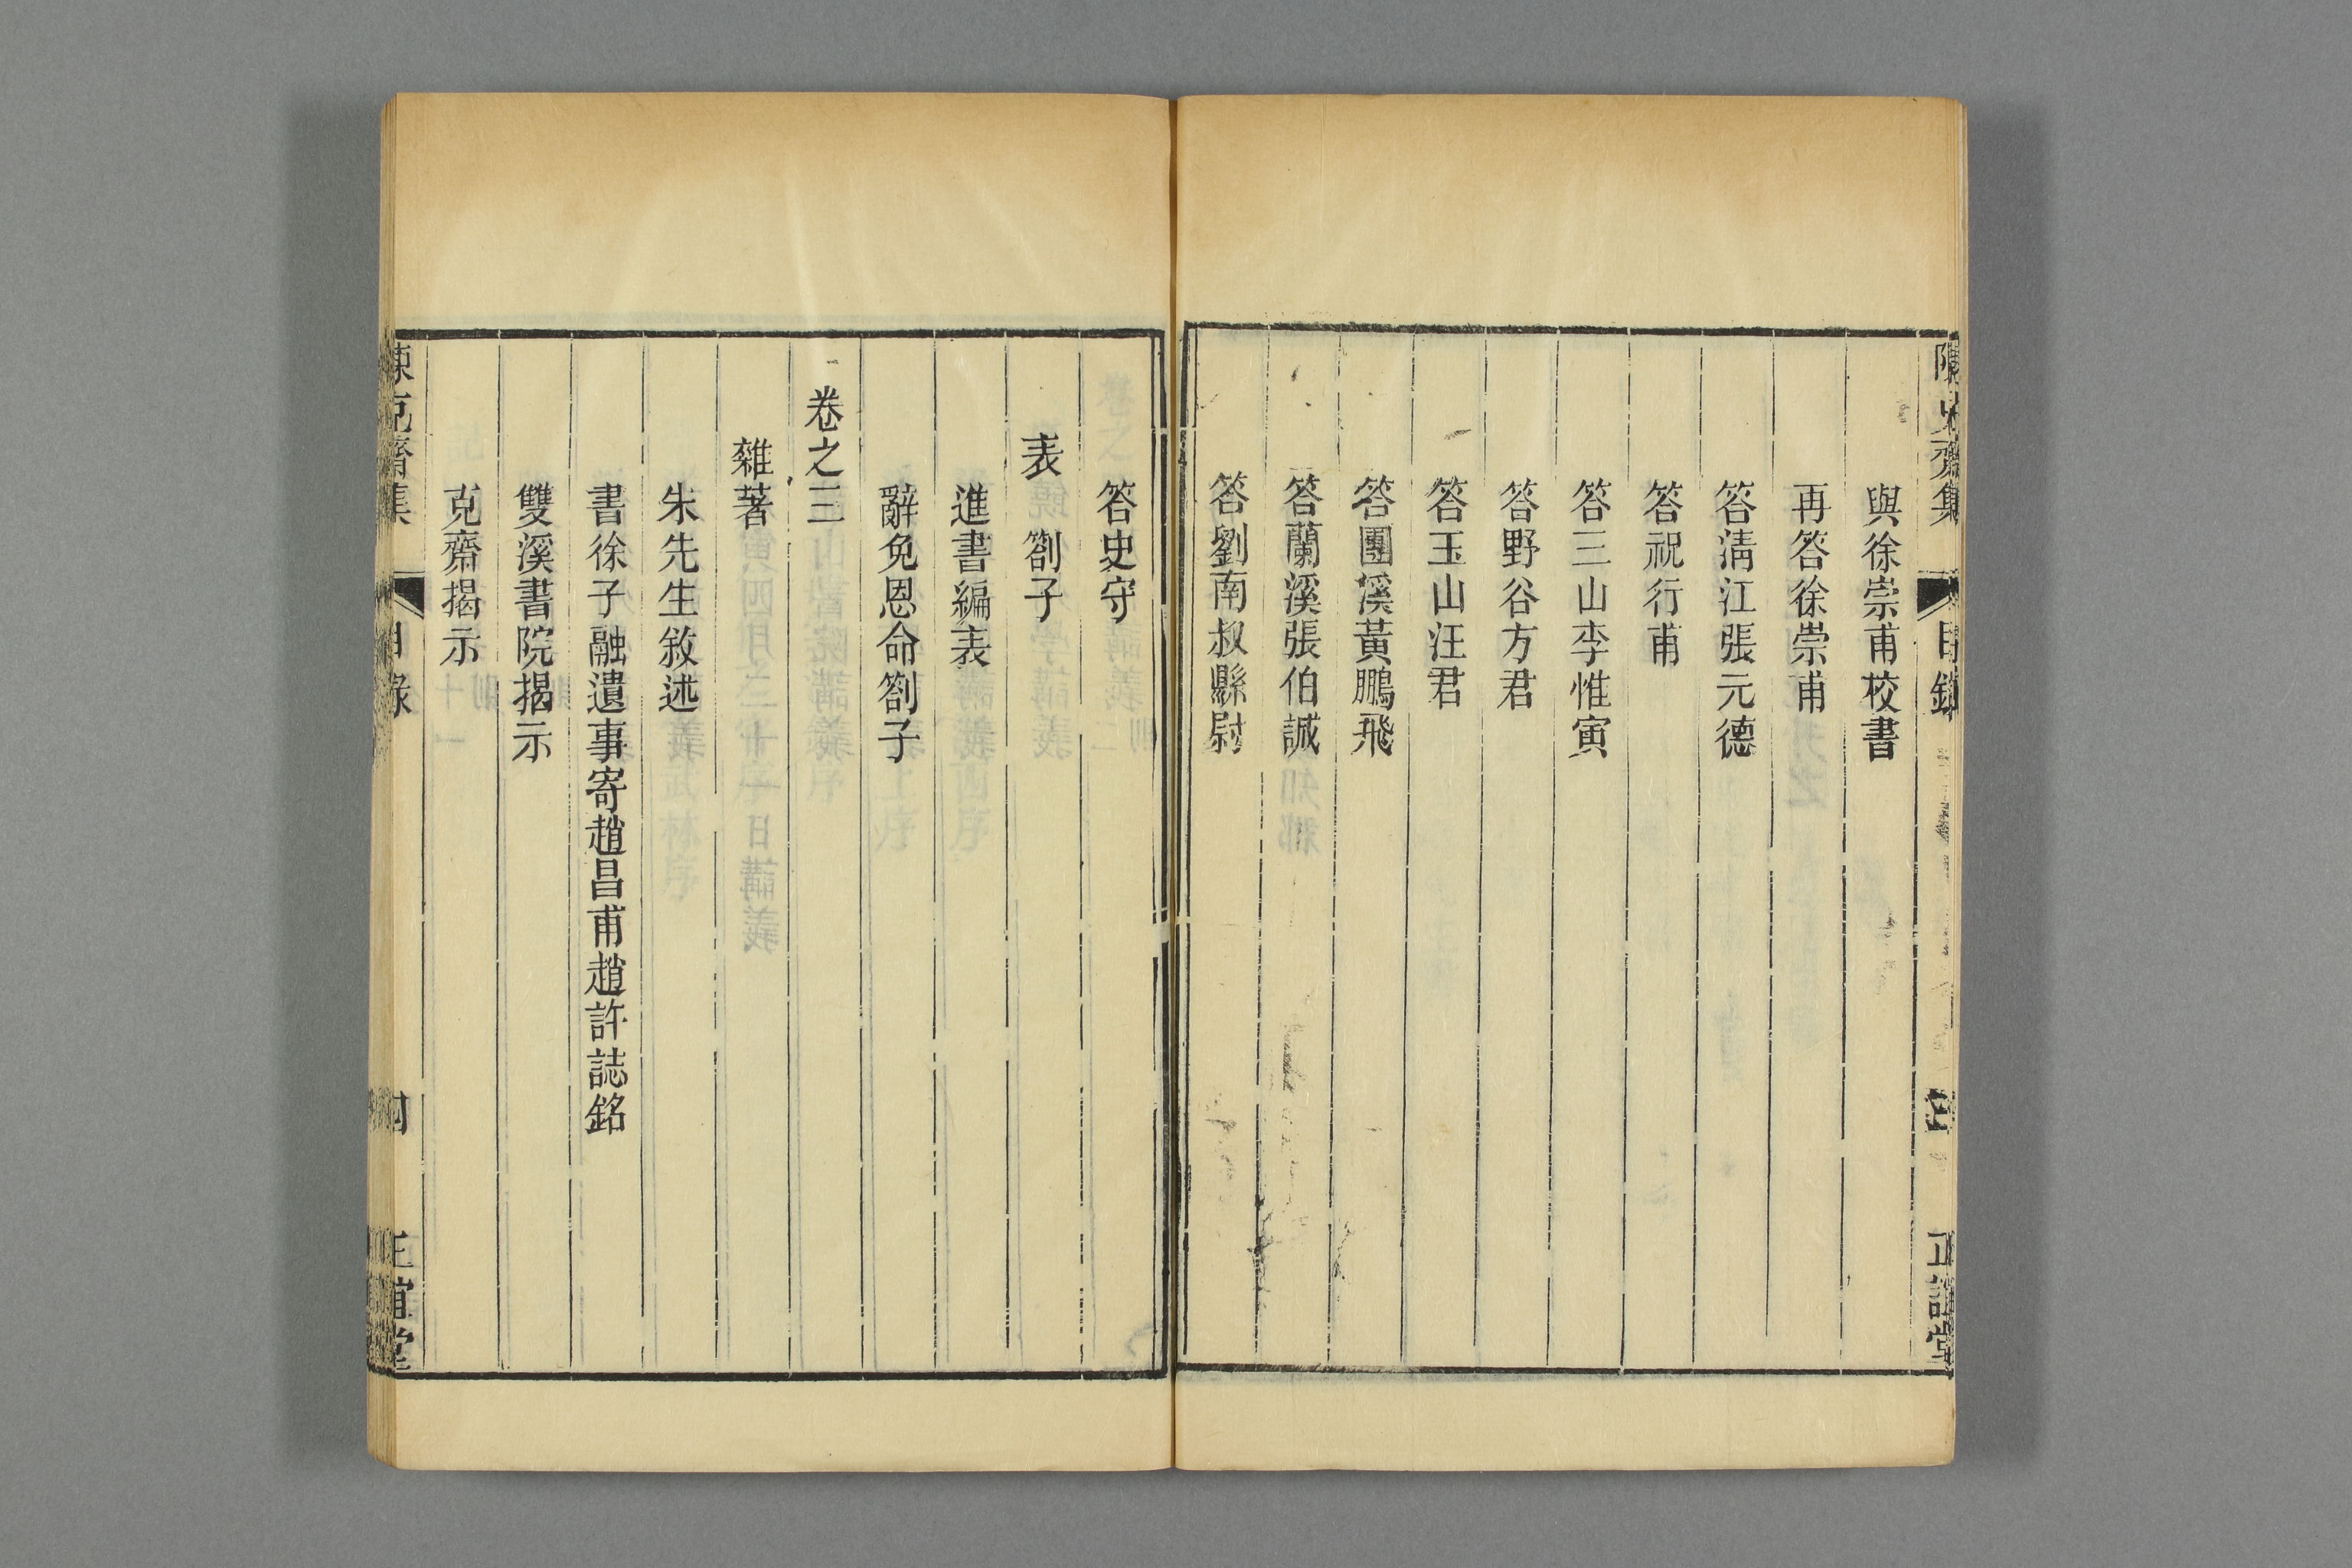 與徐崇甫校書
再答徐崇甫
答淸江張元德
答祝行甫
答三山李惟寅
答野谷方君
答玉山汪君
答團溪黃鵬飛
答蘭溪張伯誠
答劉南叔縣尉
答史守
表 劄子
進書編表
辭免恩命劄子
卷之三
雜著
朱先生敘述
書徐子融遺事寄趙昌甫趙許誌銘
雙溪書院揭示
克齋揭示
陳克齋集 目錄 四 正誼堂